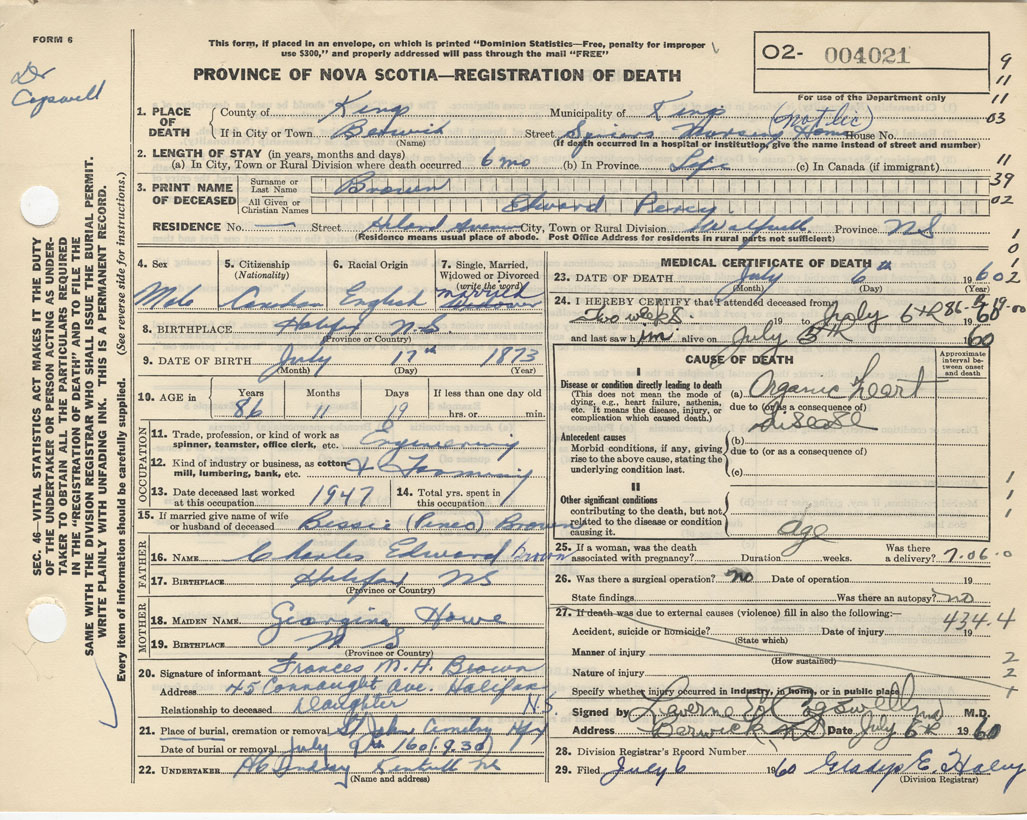 FORM 6
This form, if placed in an envelope, on which is printed "Dominion Statistics—Free, penalty for improper
use $300," and properly addressed will pass through the mail "FREE"
PROVINCE OF NOVA SCOTIA—REGISTRATION OF DEATH
O2- 004021
For use of the Department only
Dr
SEC. 46—VITAL STATISTICS ACT MAKES IT THE DUTY
OF THE UNDERTAKER OR PERSON ACTING AS UNDER-
TAKER TO OBTAIN ALL THE PARTICULARS REQUIRED
IN THE "REGISTRATION OF DEATH" AND TO FILE THE
SAME WITH THE DIVISION REGISTRAR WHO SHALL ISSUE THE BURIAL PERMIT.
WRITE PLAINLY WITH UNFADING INK. THIS IS A PERMANENT RECORD.
Every item of information should be carefully supplied. (See reverse side for instructions.)
1. PLACE OF DEATH { County of Kings Municipality of Kings (not lic)
If in City or Town Berwick Street Nursing Home House No.
(Name) (If death occurred in a hospital or institution, give the name instead of street and number)
2. LENGTH OF STAY (in years, months and days)
(a) In City, Town or Rural Division where death occurred 6 mo (b) in Province Life (c) In Canada (if immigrant)
3. PRINT NAME OF DECEASED { Surname or Last Name Brown
All Given or Christian Names Edward Percy
RESIDENCE No. — Street Avenue City, Town or Rural Division Wolfville Province NS
(Residence means usual place of abode. Post Office Address for residents in rural parts not sufficient)
4. Sex Male
5. Citizenship (Nationality) Canadian
6. Racial Origin English
7. Single, Married, Widowed or Divorced (write the word) Widower
8. BIRTHPLACE Halifax N.S.
(Province or Country)
9. DATE OF BIRTH July 17th 1873
(Month) (Day) (Year)
10. AGE in Years 86 Months 11 Days 19 If less than one day old hrs. or min.
OCCUPATION
11. Trade, profession, or kind of work as spinner, teamster, office clerk, etc. Engineering
12. Kind of industry or business, as cotton-mill, lumbering, bank, etc. & Farming
13. Date deceased last worked at this occupation 1947
14. Total yrs. spent in this occupation
15. If married give name of wife or husband of deceased Bessie (Pineo) Brown
FATHER
16. NAME Charles Edward Brown
17. BIRTHPLACE Halifax NS
(Province or Country)
MOTHER
18. MAIDEN NAME Georgina Howe
19. BIRTHPLACE N S
(Province or Country)
20. Signature of informant Frances M. H. Brown
Address 45 Connaught Ave. Halifax N.S.
Relationship to deceased Daughter
21. Place of burial, cremation or removal St John Cemetery Hfx
Date of burial or removal July
22. UNDERTAKER Lindsay Kentville NS
(Name and address)
MEDICAL CERTIFICATE OF DEATH
23. DATE OF DEATH July 6th 1960
(Month) (Day) (Year)
24. I HEREBY CERTIFY that I attended deceased from
Two weeks 19 to July 6th 1960
and last saw him alive on July 5th 1960
CAUSE OF DEATH
Approximate interval between onset and death
I
Disease or condition directly leading to death
(This does not mean the mode of dying, e.g., heart failure, asthenia, etc. It means the disease, injury, or complication which caused death.)
(a) Organic heart
due to (or as a consequence of)
disease
Antecedent causes
Morbid conditions, if any, giving rise to the above cause, stating the underlying condition last.
(b)
due to (or as a consequence of)
(c)
II
Other significant conditions
contributing to the death, but not related to the disease or condition causing it.
age
25. If a woman, was the death associated with pregnancy? Duration weeks. Was there a delivery? 7.06.0
26. Was there a surgical operation? No Date of operation 19
State findings Was there an autopsy? no
27. If death was due to external causes (violence) fill in also the following:—
434.4
Accident, suicide or homicide? Date of injury 19
(State which)
Manner of injury
(How sustained)
Nature of injury
Specify whether injury occurred in industry, in home, or in public place
Signed by M.D.
Address Berwick NS Date July 6th 1960
28. Division Registrar's Record Number
29. Filed July 6 1960 Gladys E. Haley
(Division Registrar)
9
11
11
03
11
39
02
1
0
1
02
1
1
1
2
2